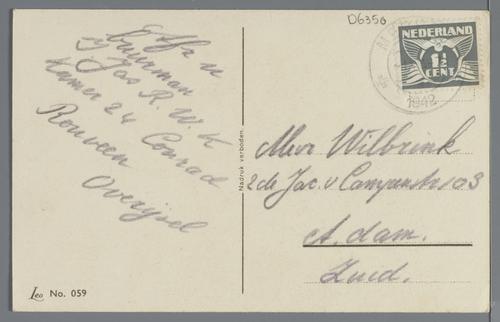 D6356
NEDERLAND
1½
CENT
1942
Afz u
buurman
Jos R. W. K
Kamer 24 Conrad
Rouveen
Overijsel
Mevr Wilbrink
2de Jac. v Campenstr 103
A. dam.
Zuid.
Nadruk verboden.
Leo No. 059